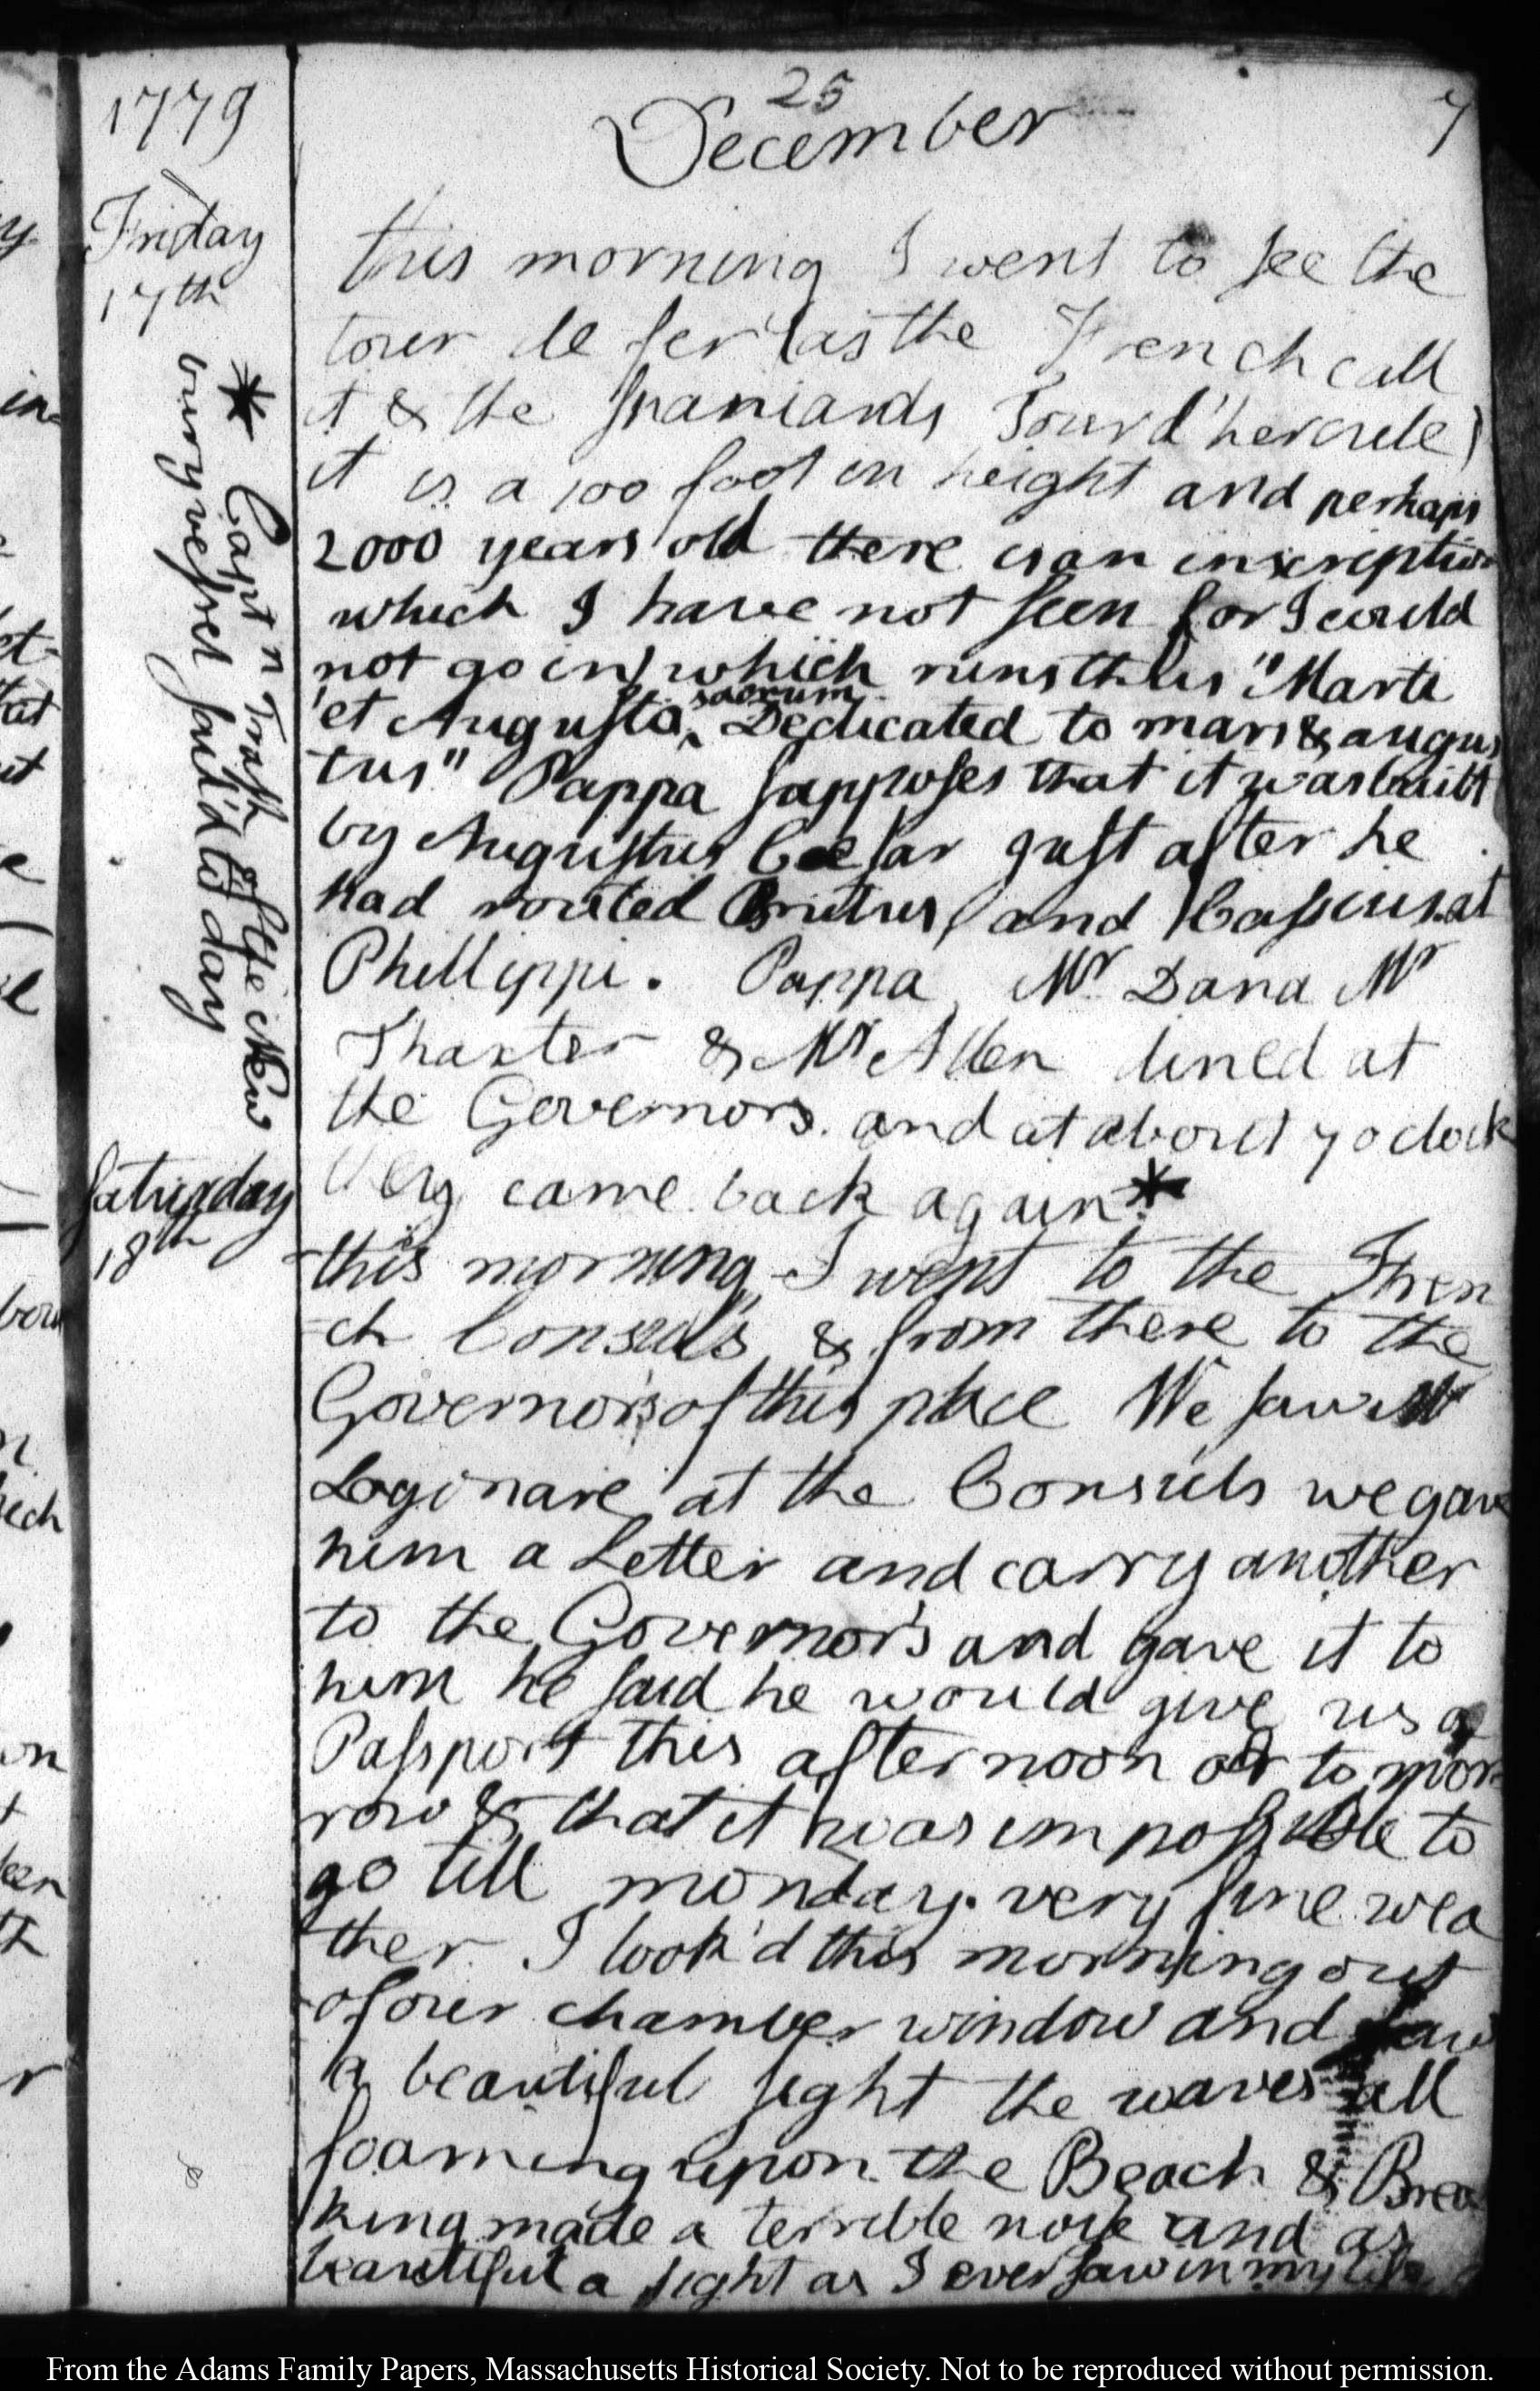 1779
25
December
7
Friday
17th
this morning I went to see the
tour de fer (as the French call
it & the Spaniards Tour d'hercule)
it is a 100 foot in height and perhaps
2000 years old there is an inscription
which I have not seen for I could
not go in) which runs thus "Marti
'et Augusto, sacrum Dedicated to mars & augus
tus" Pappa supposes that it was built
by Augustus Caesar just after he
had routed Brutus, and Cassius at
Phillippi. Pappa, Mr Dana Mr
Thaxter & Mr Allen dined at
the Governors. and at about 7 o clock
they came back again *
* Captn Trash of the New
bury vessel sail'd to day
Saturday
18th
this morning I went to the Fren
-ch Consuls & from there to the
Governor's of this place We saw Mr
Loginare at the Consuls we gave
him a Letter and carry another
to the Governor's and gave it to
him he said he would give us a
Passport this afternoon or to mor
row & that it was impossible to
go till monday. very fine wea
ther. I look'd this morning out
of our chamber window and saw
a beautiful sight the waves all
foaming upon the Beach & Brea
king made a terrible noise and as
beautiful a sight as I ever saw in my life
From the Adams Family Papers, Massachusetts Historical Society. Not to be reproduced without permission.